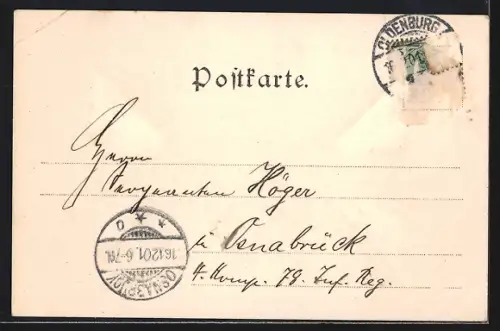 OLDENBURG
Postkarte.
Herrn
Sergeanten Höger
in Osnabrück
4. Komp. 78. Inf. Reg.
OSNABRÜCK
16.12.01. 6-7N.